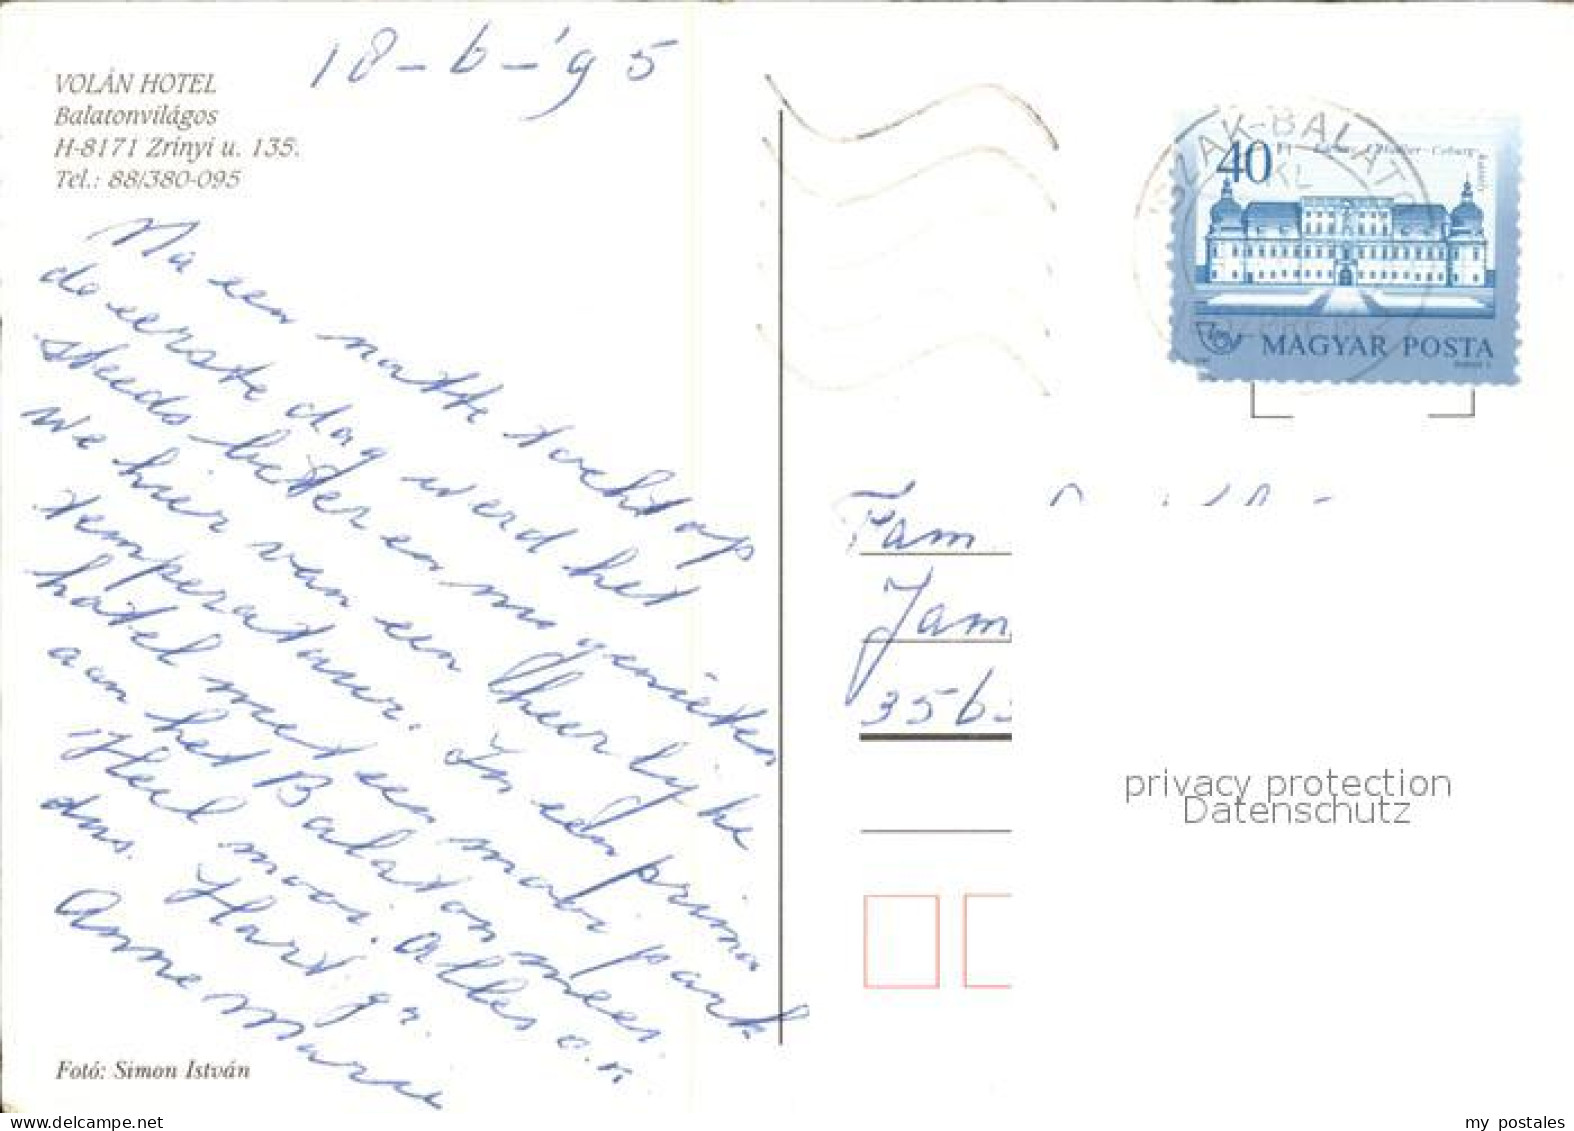 18-6-'95
VOLÁN HOTEL
Balatonvilágos
H-8171 Zrínyi u. 135.
Tel.: 88/380-095
Na een natte tocht op
de eerste dag werd het
steeds beter en nu genieten
we hier van een heerlijke
temperatuur. In een prima
hotel met een mooi park
aan het Balatonmeer.
Heel mooi. Alles o.k.
dus. Hart. gr.
Anne Marie
Fotó: Simon István
40 Ft
MAGYAR POSTA
Fam
Jam
3563
privacy protection
Datenschutz
my postales